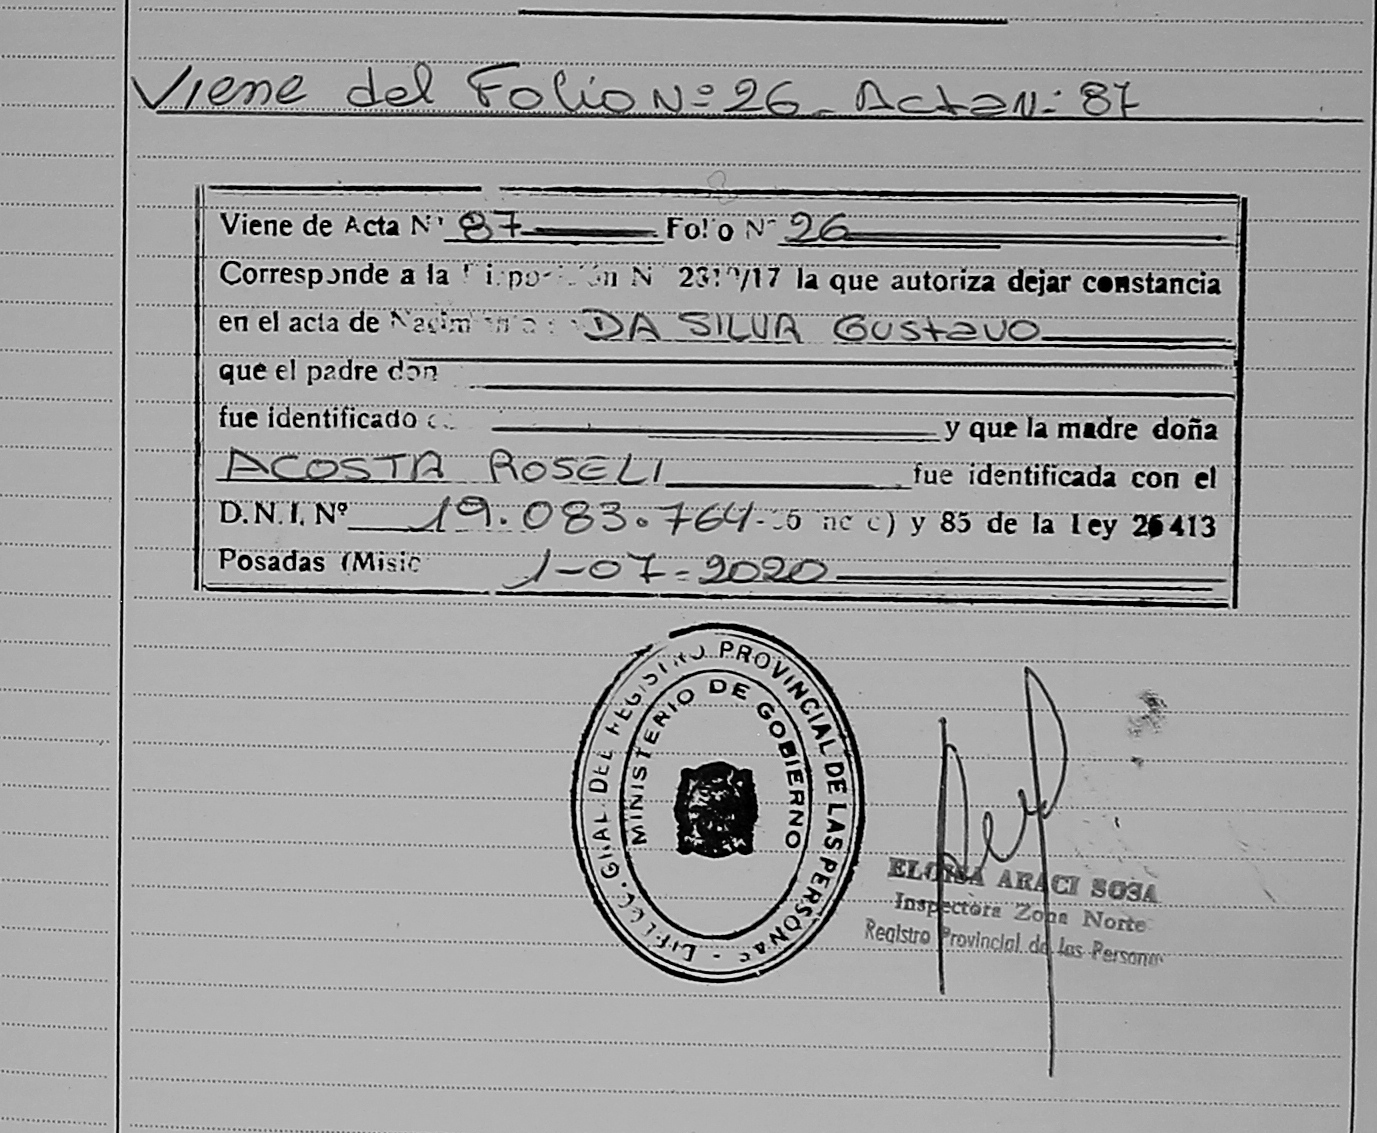 Viene del Folio Nº 26 Acta Nº 87
Viene de Acta Nº 87 Folio Nº 26
Corresponde a la N 2319/17 la que autoriza dejar constancia
en el acta de Nacimiento DA SILVA Gustavo
que el padre don
fue identificado y que la madre doña
ACOSTA ROSELI fue identificada con el
D.N.I. Nº 19.083.764 inc c) y 85 de la Ley 26413
Posadas (Misio 1-07-2020
GRAL DEL REGISTRO PROVINCIAL DE LAS PERSONAS
MINISTERIO DE GOBIERNO
ELOISA ARACI SOSA
Inspectora Zona Norte
Registro Provincial de las Personas